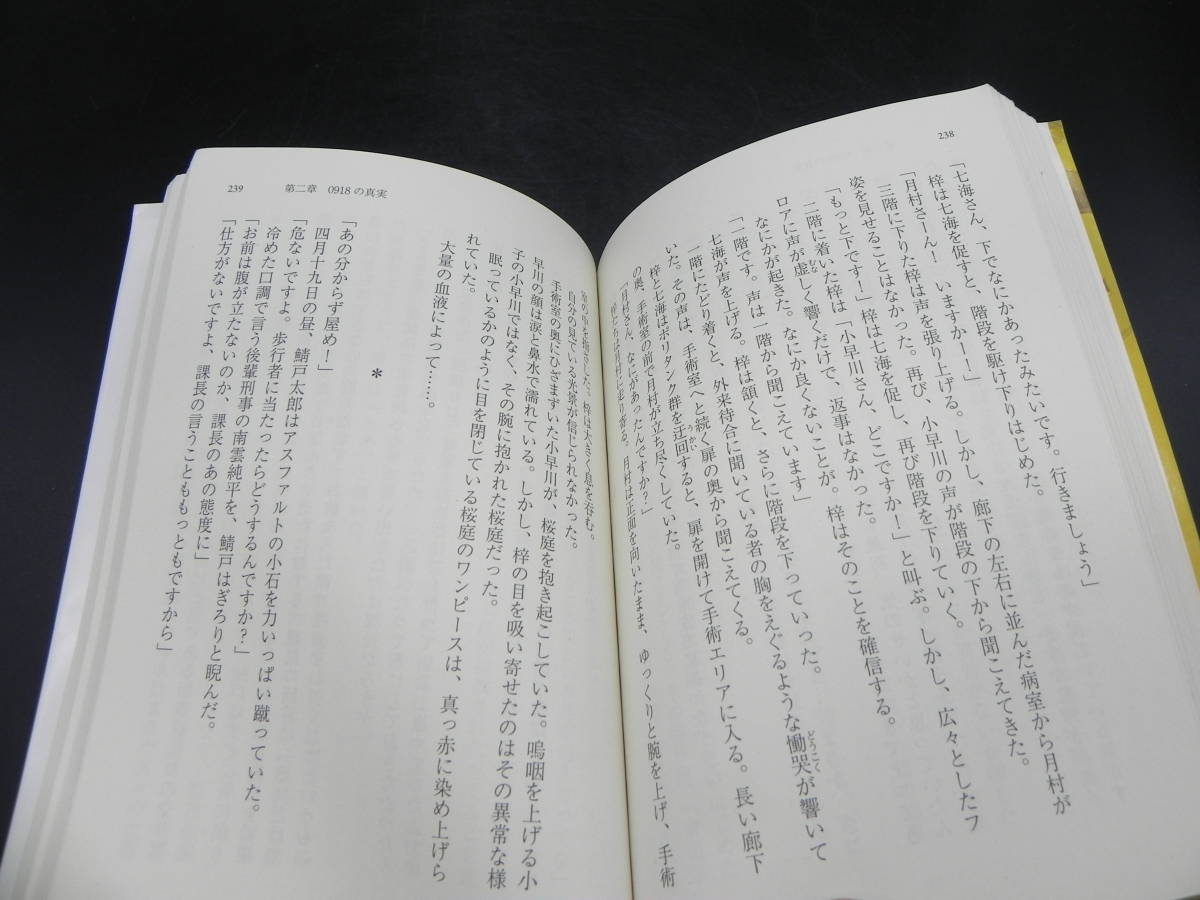 238
「七海さん、下でなにかあったみたいです。行きましょう」
梓は七海を促すと、階段を駆け下りはじめた。
「月村さーん！　いますかー！」
三階に下りた梓は声を張り上げる。しかし、廊下の左右に並んだ病室から月村が
姿を見せることはなかった。再び、小早川の声が階段の下から聞こえてきた。
「もっと下です！」梓は七海を促し、再び階段を下りていく。
二階に着いた梓は「小早川さん、どこですか！」と叫ぶ。しかし、広々としたフ
ロアに声が虚しく響くだけで、返事はなかった。
なにかが起きた。なにか良くないことが。梓はそのことを確信する。
「一階です。声は一階から聞こえています」
七海が声を上げる。梓は頷くと、さらに階段を下っていった。
一階にたどり着くと、外来待合に聞いている者の胸をえぐるような慟哭が響いて
いた。その声は、手術室へと続く扉の奥から聞こえてくる。
梓と七海はポリタンク群を迂回すると、扉を開けて手術エリアに入る。長い廊下
の奥、手術室の前で月村が立ち尽くしていた。
「月村さん、なにがあったんですか？」
梓たちは月村に走り寄る。月村は正面を向いたまま、ゆっくりと腕を上げ、手術
239　第二章　0918の真実
室の中を指さした。梓は大きく息を吞む。
自分の見ている光景が信じられなかった。
手術室の奥にひざまずいた小早川が、桜庭を抱き起こしていた。嗚咽を上げる小
早川の顔は涙と鼻水で濡れている。しかし、梓の目を吸い寄せたのはその異常な様
子の小早川ではなく、その腕に抱かれた桜庭だった。
眠っているかのように目を閉じている桜庭のワンピースは、真っ赤に染め上げら
れていた。
大量の血液によって……。
＊
「あの分からず屋め！」
四月十九日の昼、鯖戸太郎はアスファルトの小石を力いっぱい蹴っていた。
「危ないですよ。歩行者に当たったらどうするんですか？」
冷めた口調で言う後輩刑事の南雲純平を、鯖戸はぎろりと睨んだ。
「お前は腹が立たないのか、課長のあの態度に」
「仕方がないですよ、課長の言うことももっともですから」